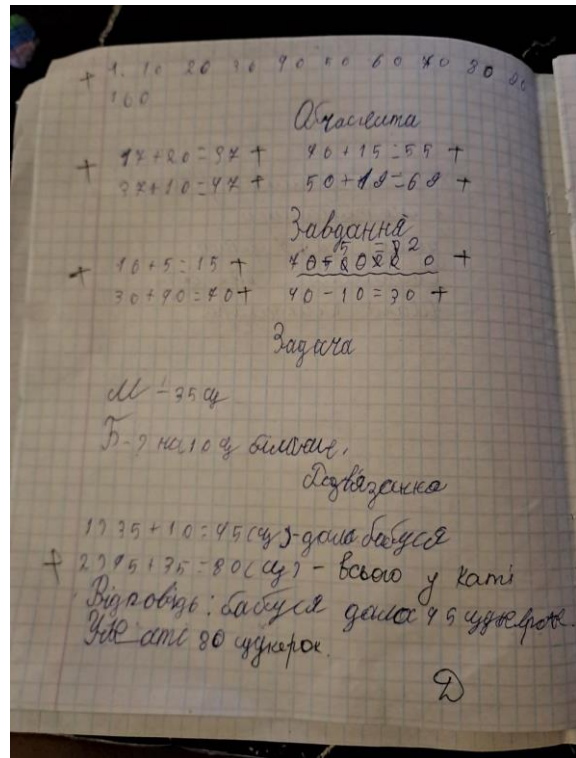 + 1. 10 20 30 40 50 60 70 80 90
100
Обчислити
+ 17+20=37 + 40+15=55 +
37+10=47 + 50+19=69 +
Завдання
+ 10+5=15 + +
30+40=70+ 40-10=30 +
Задача
М - 35 ц
Б-? на 10 ц більше.
Розв'язання
1) 35+10=45(ц)-дала бабуся
+ 2) 45+35=80(ц) - всього у Каті
Відповідь: бабуся дала 45 цукерок.
80 цукерок.
Д